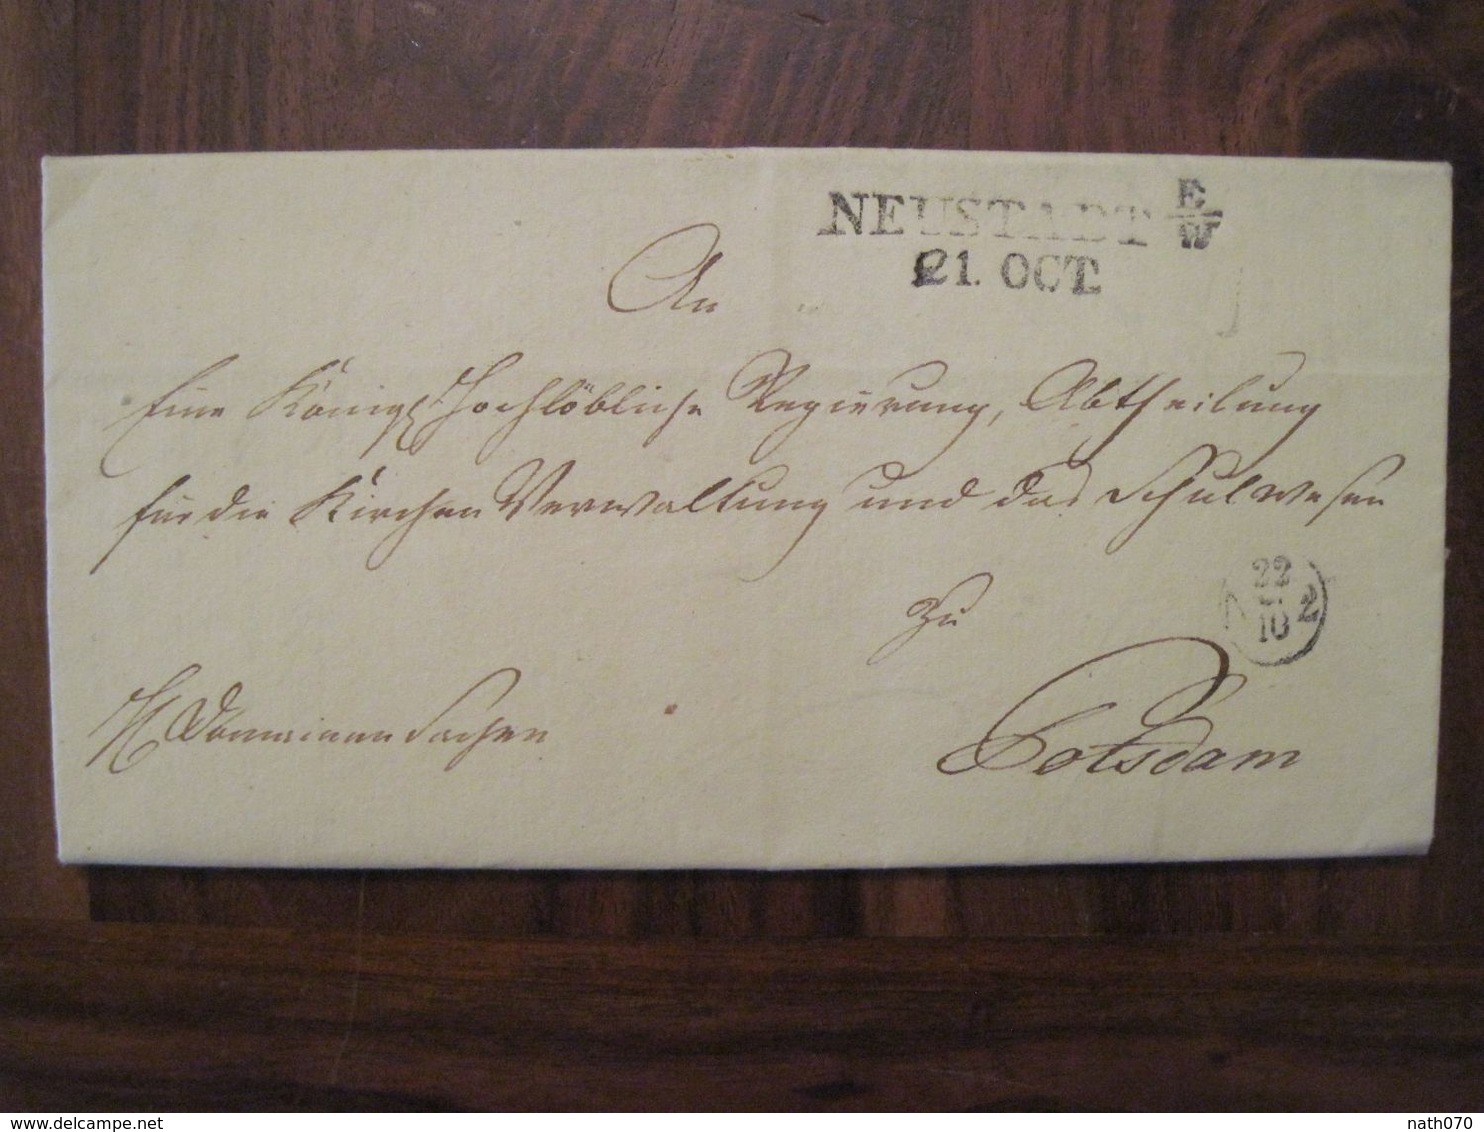 NEUSTADT E/W
21. OCT.
An
Eine Königl Hochlöbliche Regierung, Abtheilung
für die Kirchen Verwaltung und das Schulwesen
zu
22
10
2
Potsdam
Domainen Sachen
www.delcampe.net
nath070